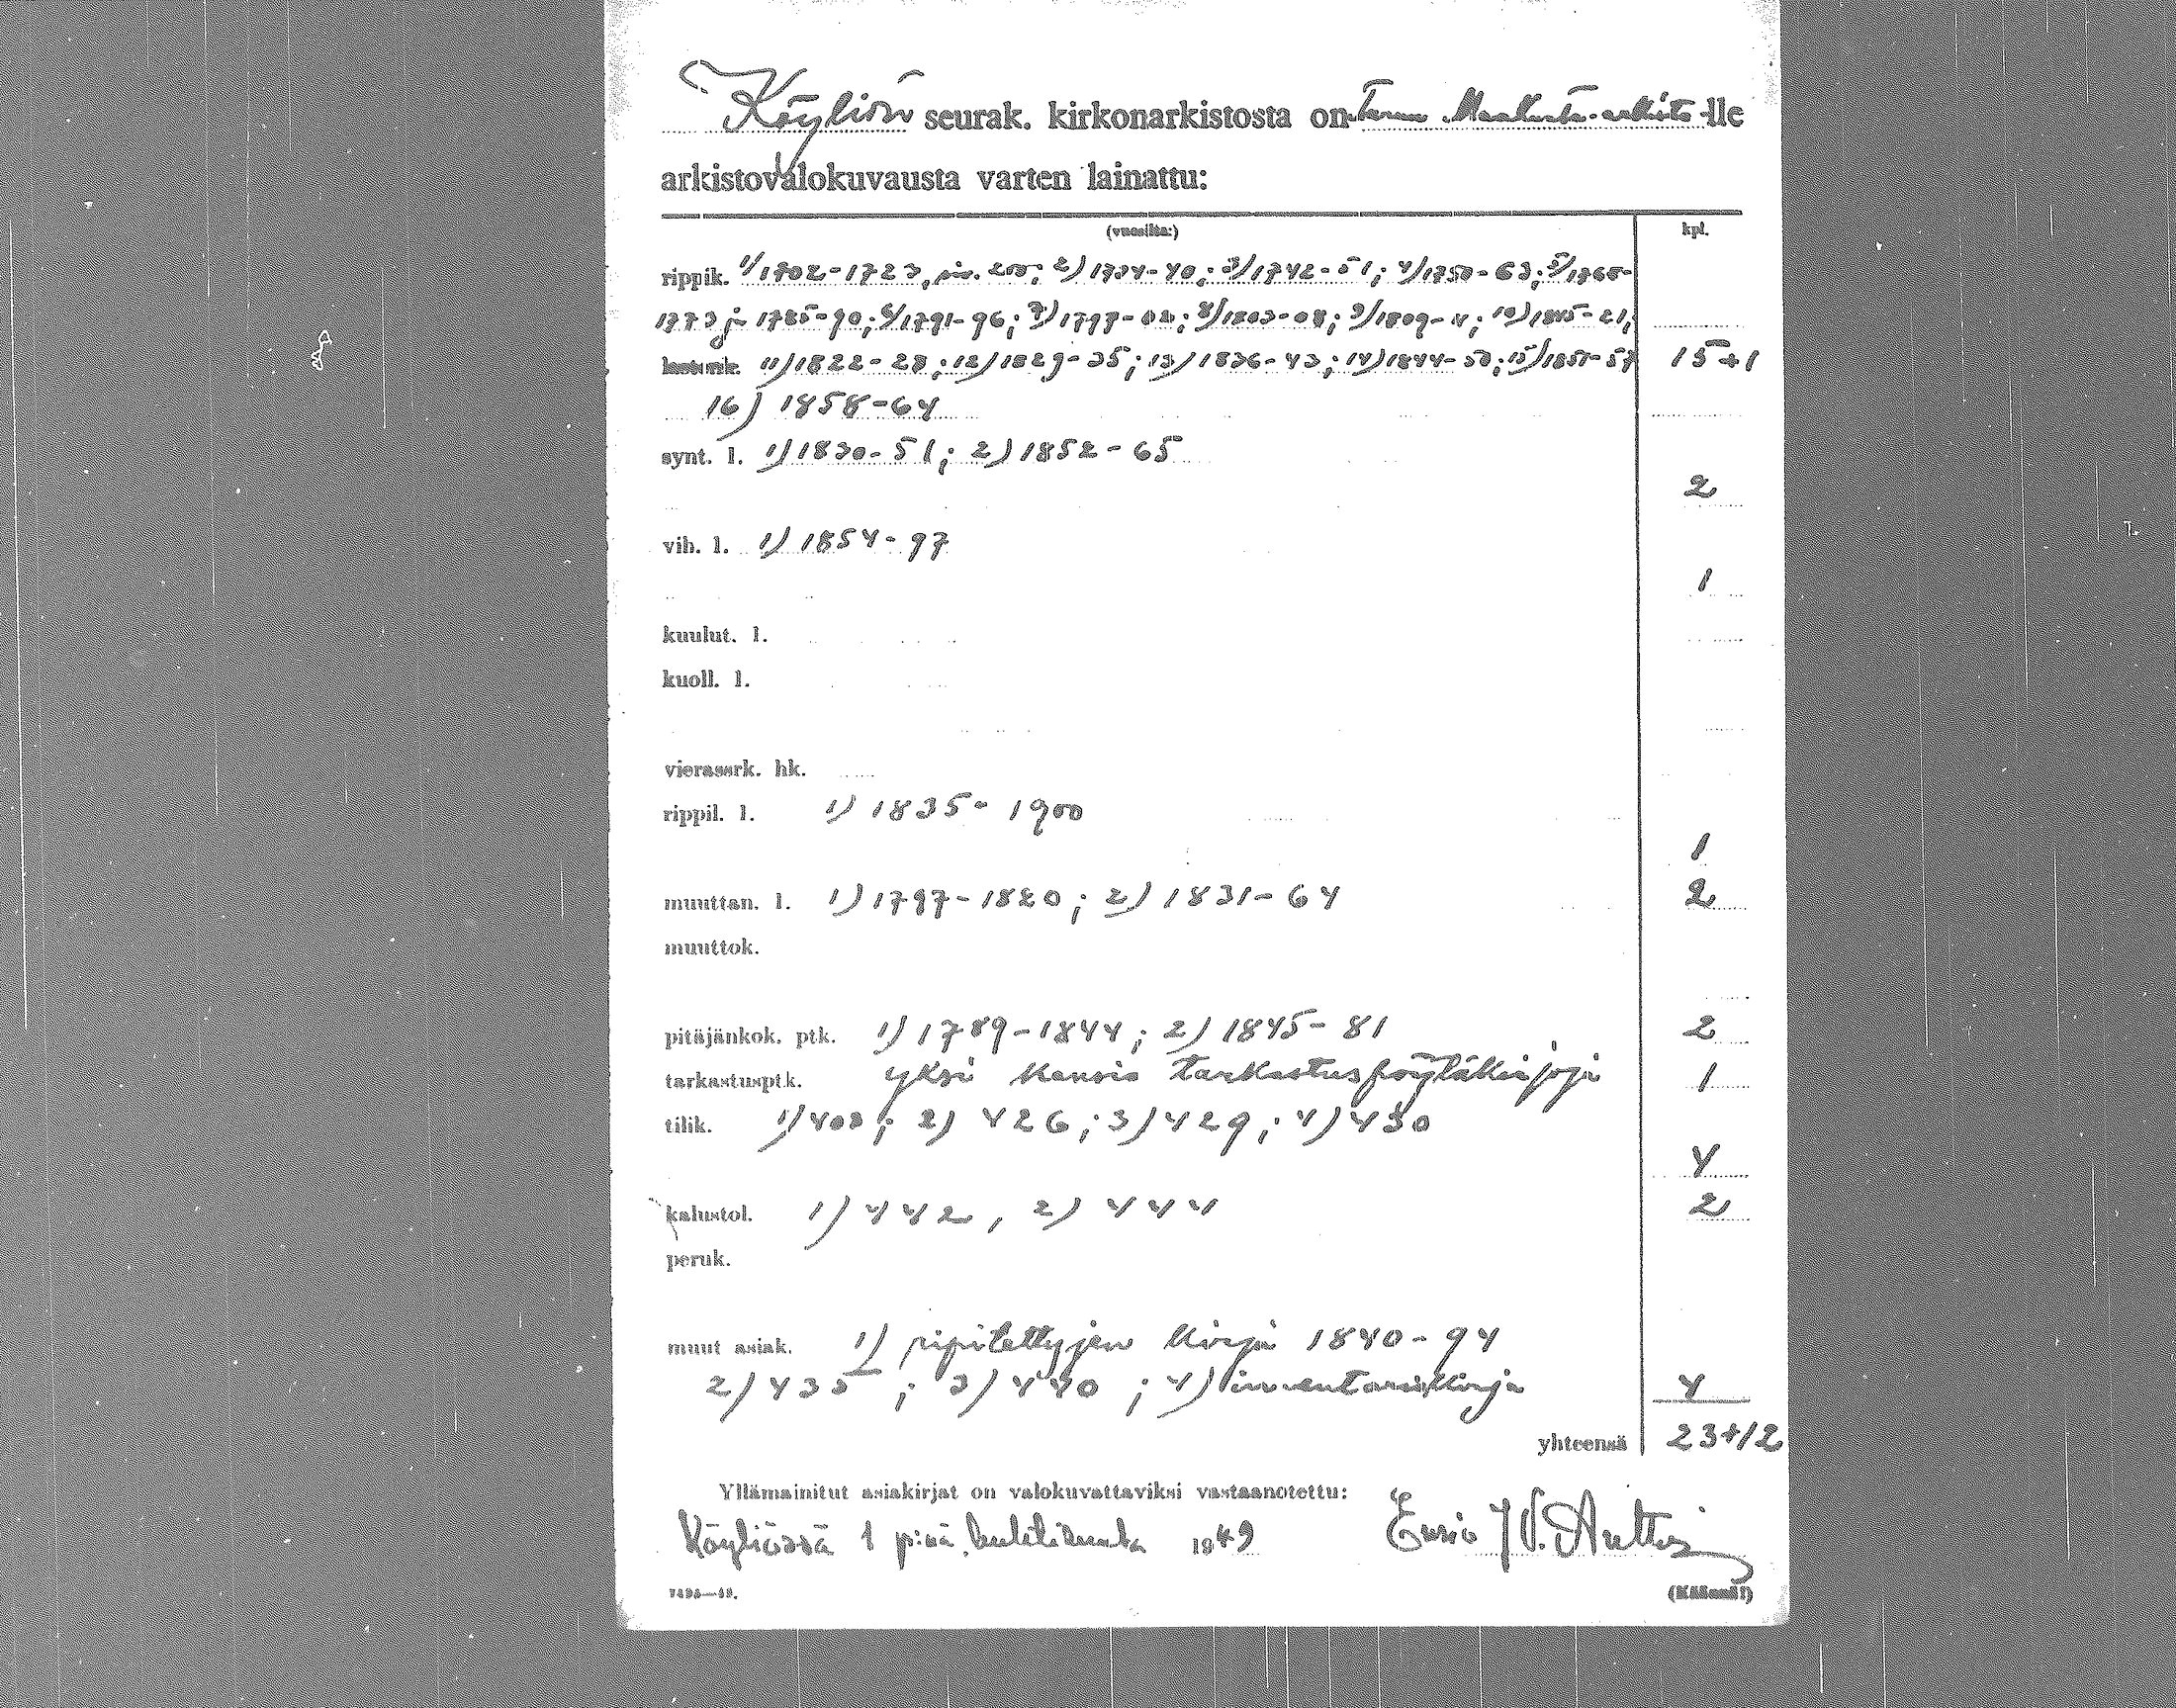 Köyliön seurak. kirkonarkistosta on Turun Maakunta-arkisto-lle
arkistovalokuvausta varten lainattu:
(vuosilta:) kpl.
rippik. 1) 1702-1723, 2) 1734-40; 3) 1742-51; 4) 1750-63; 5) 1765-
1773 ja 1785-90; 6) 1791-96; 7) 1797-02; 8) 1803-08; 9) 1809-14; 10) 1815-21;
lastenk. 11) 1822-28; 12) 1829-35; 13) 1836-43; 14) 1844-50; 15) 1851-57 15+1
16) 1858-64
synt. l. 1) 1830-51; 2) 1852-65
2
vih. l. 1) 1854-97
1
kuulut. l.
kuoll. l.
vierassrk. hk.
rippil. l. 1) 1835-1900
1
muuttan. l. 1) 1797-1820; 2) 1831-64 2
muuttok.
pitäjänkok. ptk. 1) 1789-1844; 2) 1845-81 2
tarkastusptk. yksi kansio tarkastuspöytäkirjoja 1
tilik. 1) 403; 2) 426; 3) 429; 4) 430
4
kalustol. 1) 442, 2) 444 2
peruk.
muut asiak. 1) ripitettyjen kirja 1840-94
2) 435; 3) 440; 4) inventariokirja 4
yhteensä 23+12
Yllämainitut asiakirjat on valokuvattaviksi vastaanotettu:
Köyliössä 1 p:nä huhtikuuta 1949
7495—48.